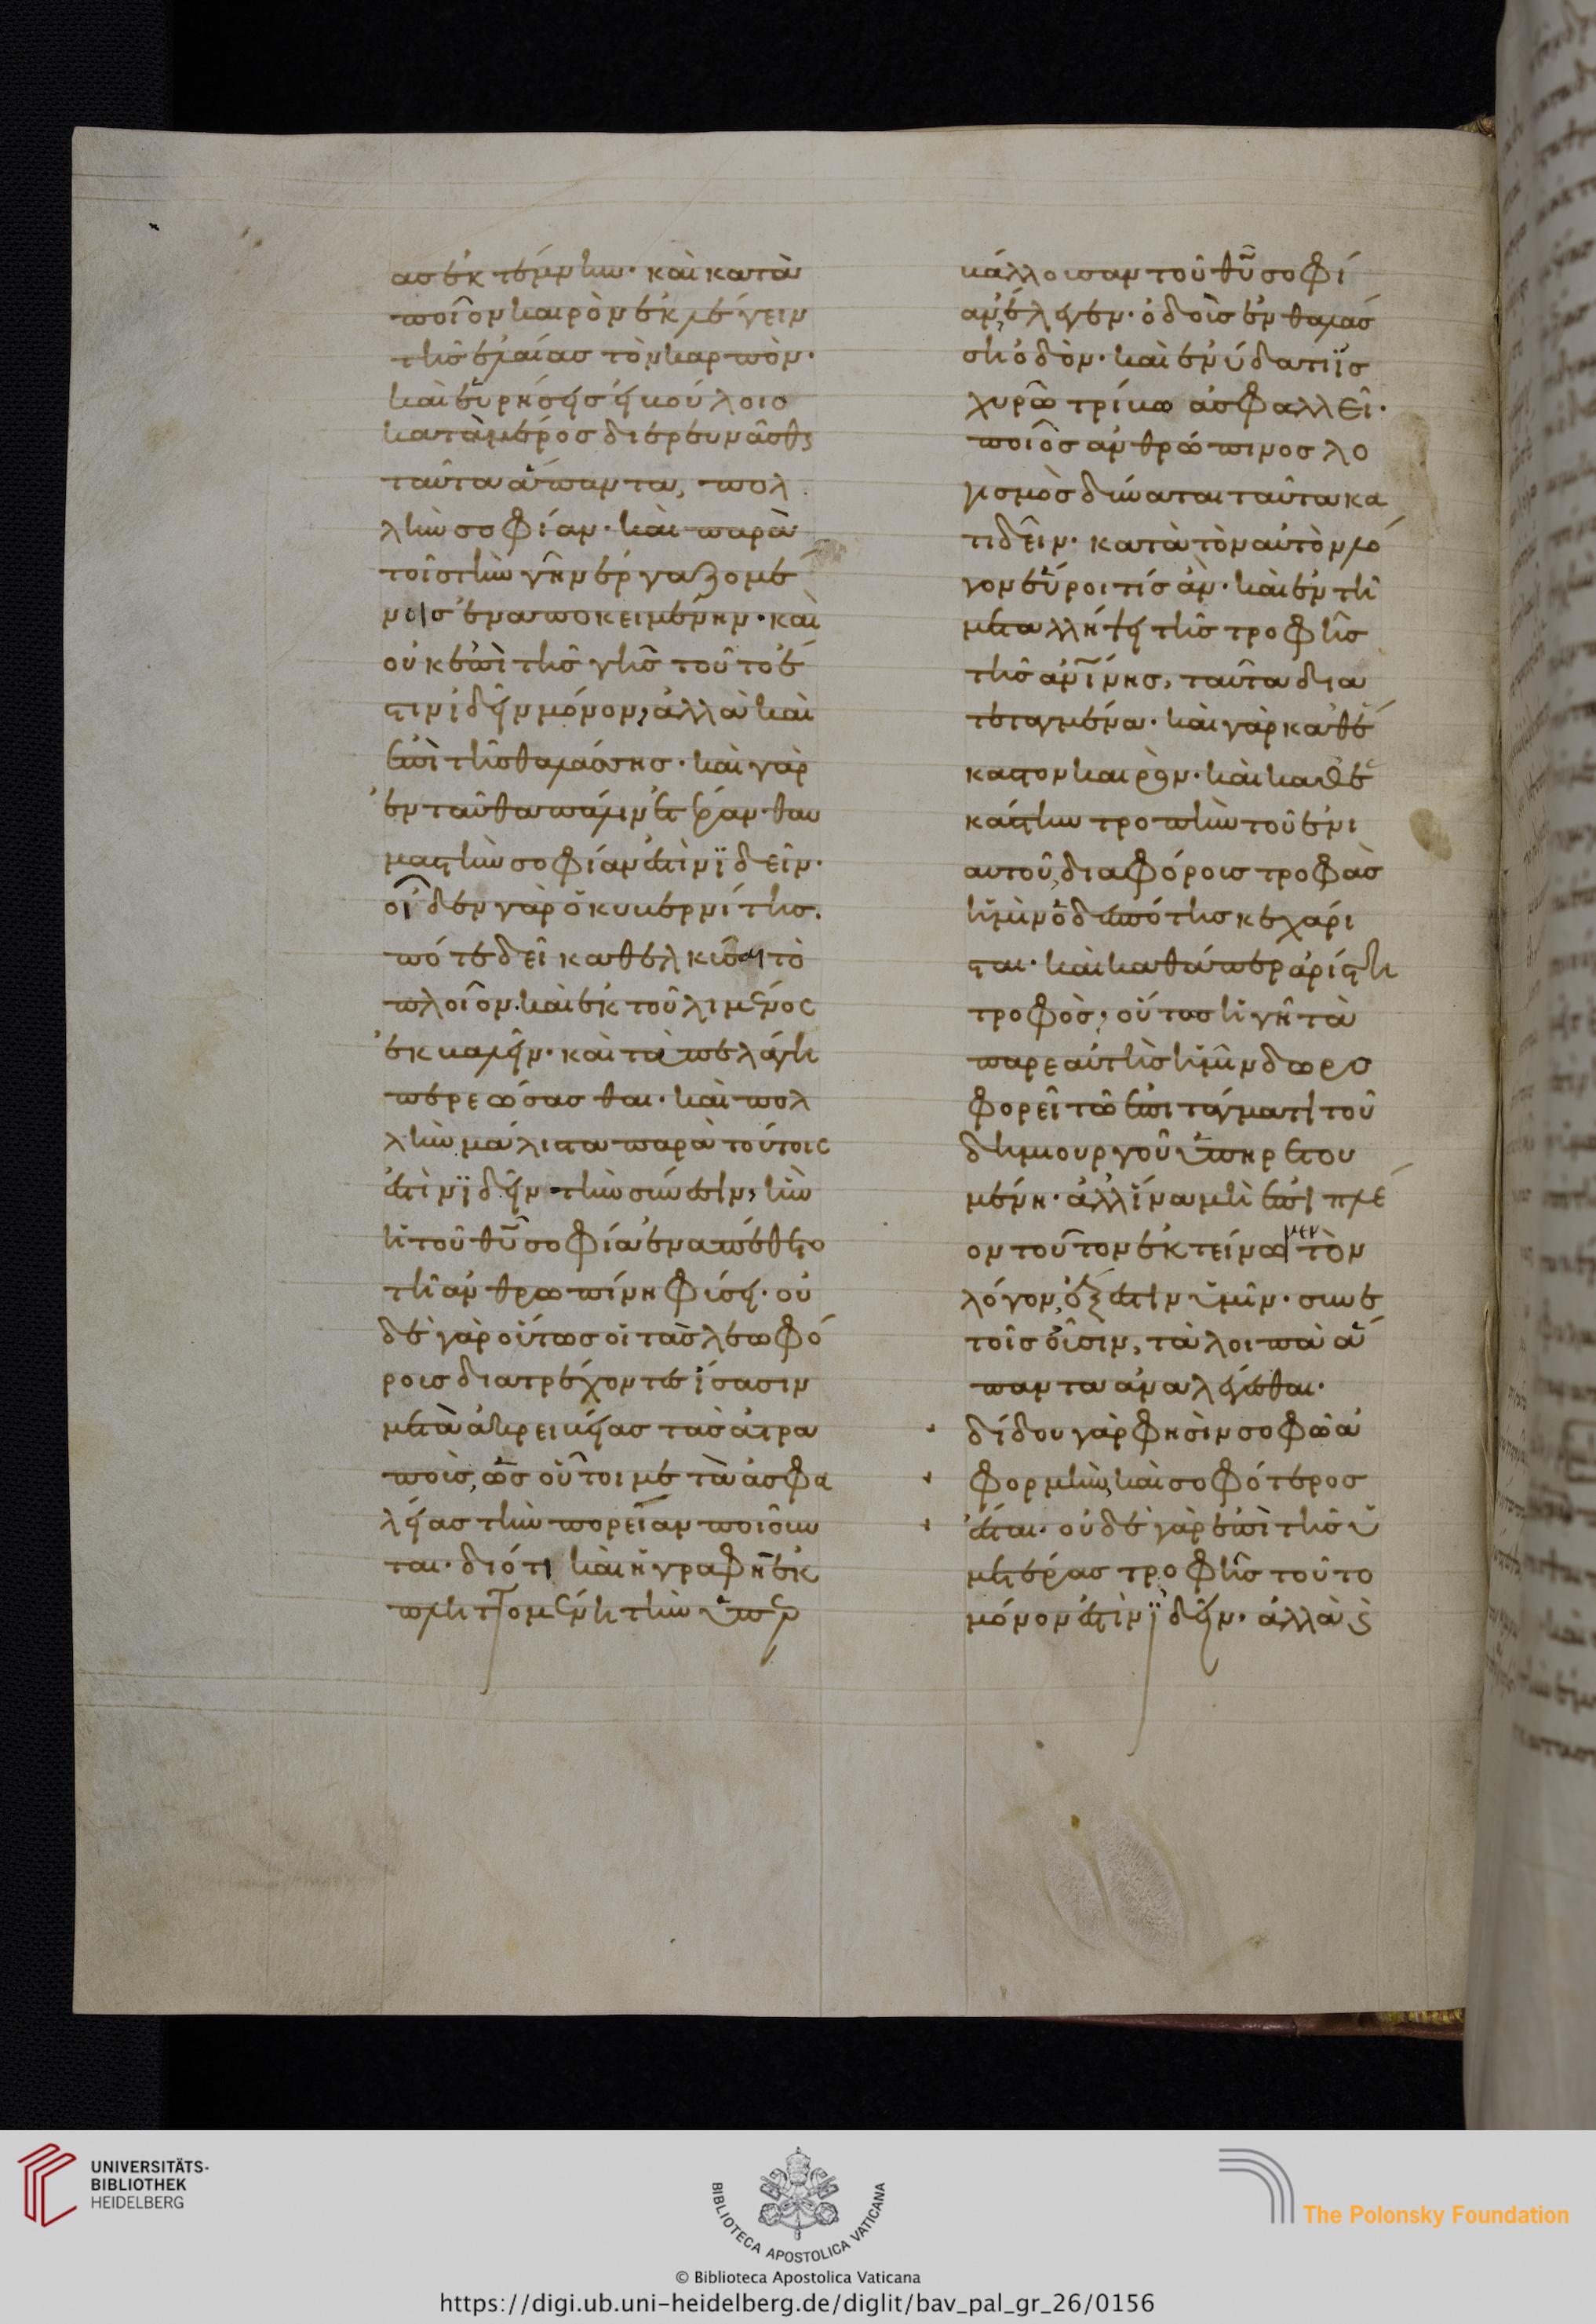 ας ἐκτέμνην· καὶ κατὰ
ποῖον καιρὸν ἐκλέγειν
τῆς ἐλαίας τὸν καρπόν·
καὶ εὑρήσεις εἰ βούλοιο
κατὰ μέρος διερευνᾶσθαι
ταῦτα ἅπαντα, πολ
λὴν σοφίαν· καὶ παρὰ
τοῖς τὴν γῆν ἐργαζομέ
νοις ἐναποκειμένην· καὶ
οὐκ ἐπὶ τῆς γῆς τοῦτο ἔ
στιν ἰδεῖν μόνον, ἀλλὰ καὶ
ἐπὶ τῆς θαλάσσης· καὶ γὰρ
ἐνταῦθα πάλιν ἑτέραν θαυ
μαστὴν σοφίαν ἐστὶν ἰδεῖν·
οἶδεν γὰρ ὁ κυβερνίτης.
πότε δεῖ καθελκῦσαι τὸ
πλοῖον. καὶ ἐκ τοῦ λιμένος
ἐκβαλεῖν· καὶ τὰ πελάγη
περεώσασθαι· καὶ πολ
λὴν μάλιστα παρὰ τούτοις
ἐστὶν ἰδεῖν τὴν σύνεσιν, ἣν
ἡ τοῦ θῦ σοφία ἐναπέθετο
τῆ ἀνθρωπίνη φύσει· οὐ
δὲ γὰρ οὕτως οἱ τὰς λεωφό
ροις διατρέχοντες ἴσασιν
μετὰ ἀκρειβείας τὰς ἀτρα
ποῖς, ὡς οὗτοι μετὰ ἀσφα
λείας τὴν πορεῖαν ποιοῦν
ται· διότι καὶ ἡ γραφὴ ἐκ
πληττομένη τὴν ὑπερ
βάλλουσαν τοῦ θῦ σοφί
αν, ἔλεγεν· ὁ δοὺς ἐν θαλάσ
ση ὁδόν· καὶ ἐν ὕδατι ἰσ
χυρῶ τρίβω ἀσφαλλεῖ·
ποῖος ἀνθρώπινος λο
γισμὸς δύναται ταῦτα κα
τιδεῖν· κατὰ τὸν αὐτὸν λό
γον εὕροι τίς ἂν· καὶ ἐν τῆ
μεταλλήψει τῆς τροφῆς
τῆς ἀνΐνης, ταῦτα δια
τεταγμένα· καὶ γὰρ καθ' ἕ
καστον καιρὸν· καὶ καθ' ἑ
κάστην τροπὴν τοῦ ἐνι
αυτοῦ, διαφόροις τροφὰς
ἡμῖν ὁ δεσπότης κεχάρι
σται· καὶ καθάπερ ἀρίστη
τροφὸς, οὕτως ἡ γῆ τὰ
παρ εαύτῆς ἡμῖν δωρο
φορεῖ τῶ ἐπιτάγματι τοῦ
δημιουργοῦ ὑπηρετου
μένη· ἀλλ' ἵνα μὴ ἐπὶ πλέ
ον τοῦτον ἐκτείνω μεν τὸν
λόγον, ἔξεστιν ὑμῖν· συνε
τοῖς οὖσιν, τὰ λοιπὰ ἅ
παντα ἀναλέγεσθαι·
δίδου γὰρ φησὶν σοφῶ ἀ
φορμὴν, καὶ σοφότερος
ἔσται· οὐδὲ γὰρ ἐπὶ τῆς ὑ
μετέρας τροφῆς τοῦτο
μόνον ἐστὶν ἰδεῖν· ἀλλὰ ϗ
UNIVERSITÄTS-
BIBLIOTHEK
HEIDELBERG
BIBLIOTECA APOSTOLICA VATICANA
The Polonsky Foundation
© Biblioteca Apostolica Vaticana
https://digi.ub.uni-heidelberg.de/diglit/bav_pal_gr_26/0156